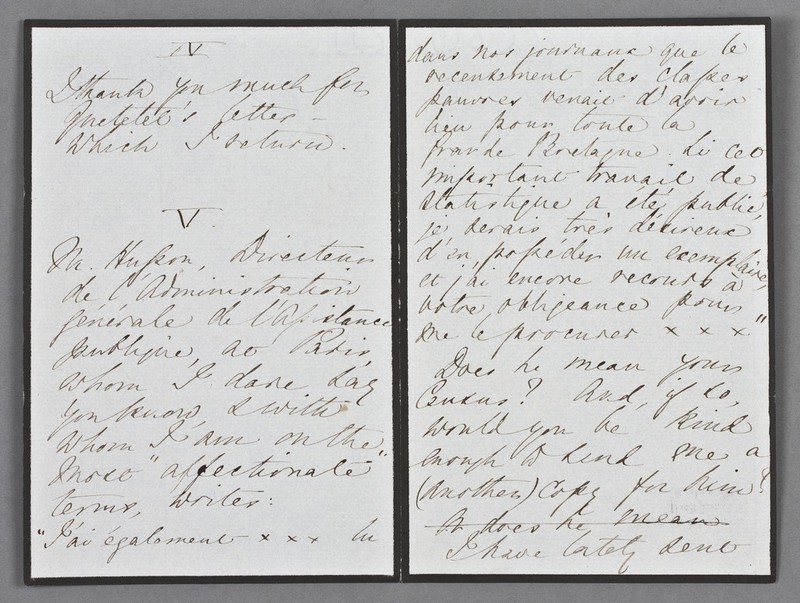 IV
I thank you much for
Quetelet's letter -
which I return.
V.
M. Husson, Directeur
de l'Administration
générale de l'Assistance
publique, at Paris,
whom I dare say
you know, & with
whom I am on the
most "affectionate"
terms, writes:
"J'ai également x x x lu
dans nos journaux que le
recensement des classes
pauvres venait d'avoir
lieu pour toute la
Grande Bretagne. Si cet
important travail de
statistique a été publié,
je serais très désireux
d'en posséder un exemplaire,
et j'ai encore recours à
votre obligeance pour
me le procurer x x x"
Does he mean your
Census? And, if so,
would you be kind
enough to send me a
(another) copy for him?
Or does he mean
I have lately sent